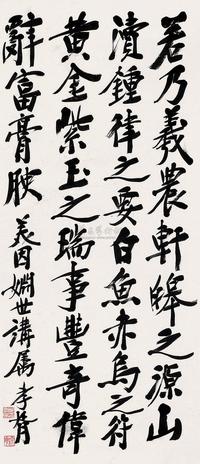 若乃羲農軒皞之源山
瀆鍾律之要白魚赤烏之符
黃金紫玉之瑞事豐奇偉
辭富膏腴
美因姻世講屬 李瑞